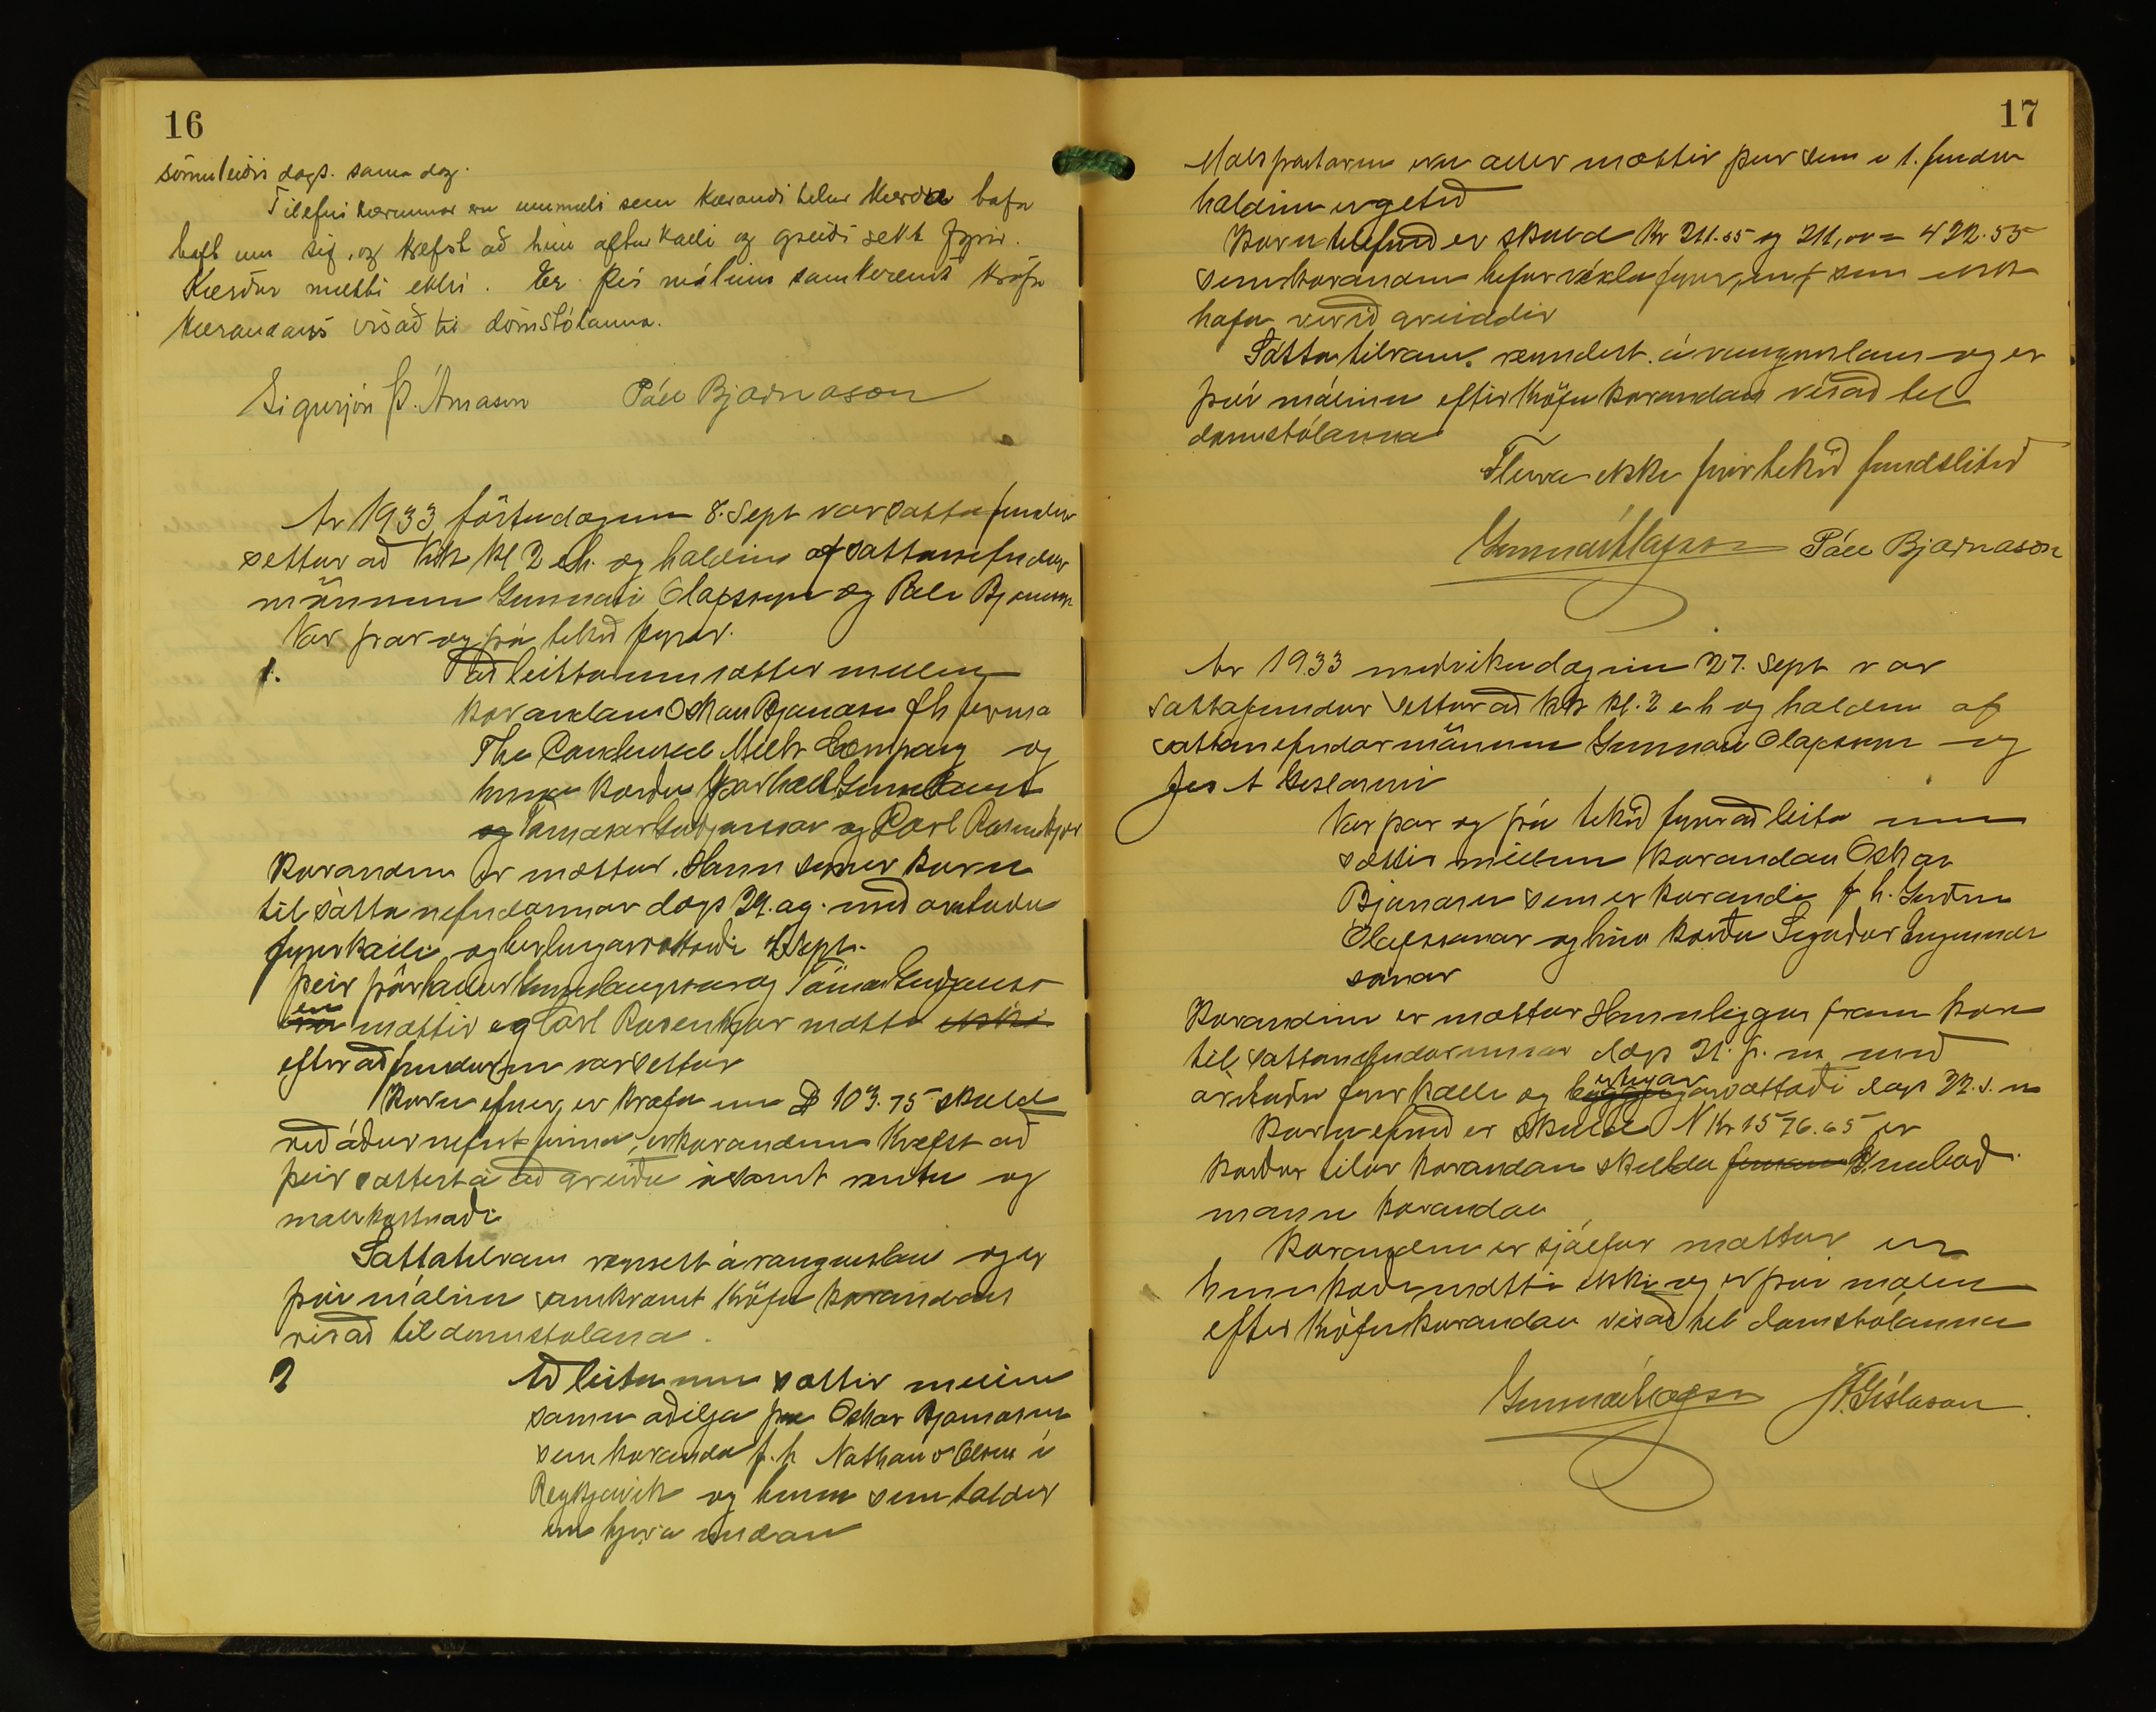 16
sömuleiðis dags. sama dag.
Tilefni kærunnar eru ummæli sem kærandi telur kærðu hafa
haft um sig, og krefst að hún afturkalli og greiði sekt fyrir.
Kærður mætti ekki. Er því málinu samkvæmt kröfu
kærandans vísað til dómstólanna.
Sigurjón Þ. Árnason Páll Bjarnason
Ár 1933 föstudaginn 8. Sept var sáttafundur
settur að kl 2 e.h. og haldinn af sáttanefndar
mönnum Gunnari Olafssyni og Páli Bjarnasyni
Var þar og þá tekið fyrir.
1. Að leitta um sættir millum
kærandans Oskars Bjarnasen fh firma
The Condensed Milk Company og
hinna kærðu Þórhall Gunnlaugs
og Tómasar Guðjonssonar og Carl Rosenkjær
Kærandinn er mættur. Hann synir kæru
til sáttanefndarinnar dags 29. ag. með áritaðu
fyrirkalli og birtingarvottorði 4 Sept.
Þeir Þórhallur Gunnlaugsson og Tómas Guðjonsson
eru mættir og Carl Rosenkjær mætti ekki
eftir að fundurinn var settur
Kæruefnið er krafa um $ 103.75 skuld
við áðurnefnt firma, er kærandinn krefst að
þeir sættist á að greiða ásamt rentu og
málskostnaði
Sáttatilraun reyndist árangurslaus og er
því málinu samkvæmt kröfu kærandans
vísað til domstolana.
2 Að leita um sættir millum
sömu aðilja þá Oskar Bjarnasen
sem kæranda f.h Nathan & Olsen í
Reykjavik og hinna sem taldir
eru hjer á undan
17
Málspartarnir eru allir mættir þeir sem á 1. fundi
haldinn er getið
Kærutilefnið er skuld kr 211.55 og 211,00 = 422.55
sem kærandinn hefur víxla fyrir, sem ekki
hafa verið greiddir
Sáttatilraun reyndist árangurslaus og er
því málinu eftir kröfu kærandans vísað til
domstólanna
Fleira ekki fyrirtekið fundi slitið
Gunnar Ólafsson Páll Bjarnason
Ár 1933 miðvikudaginn 27. Sept var
sáttafundur settur að kl. 2 e h og haldinn af
sáttanefndarmönnum Gunnari Olafssyni og
Jes A Gíslasyni
Var þar og þá tekið fyrir að leita um
sættir millum kærandans Oskar
Bjarnasen sem er kærandi f h. Guðm
Ólafssonar og hins kærða Sigurðar Ingimundar
sonar
Kærandinn er mættur Hann leggur fram kæru
til sáttanefndarinnar dags 21. þ. m með
árituðu fyrirkalli og birtingarvottorði dags 22. s. m
Kæruefnið er skuld N Kr 1576.65 er
kærður telur kærandans skulda umboðs
manni kærandans
Kærandinn er sjálfur mættur en
hinn kærði mætti ekki og er því málinu
eftir kröfu kærandans vísað til domstólanna
Gunnar Ólafsson J A Gíslason